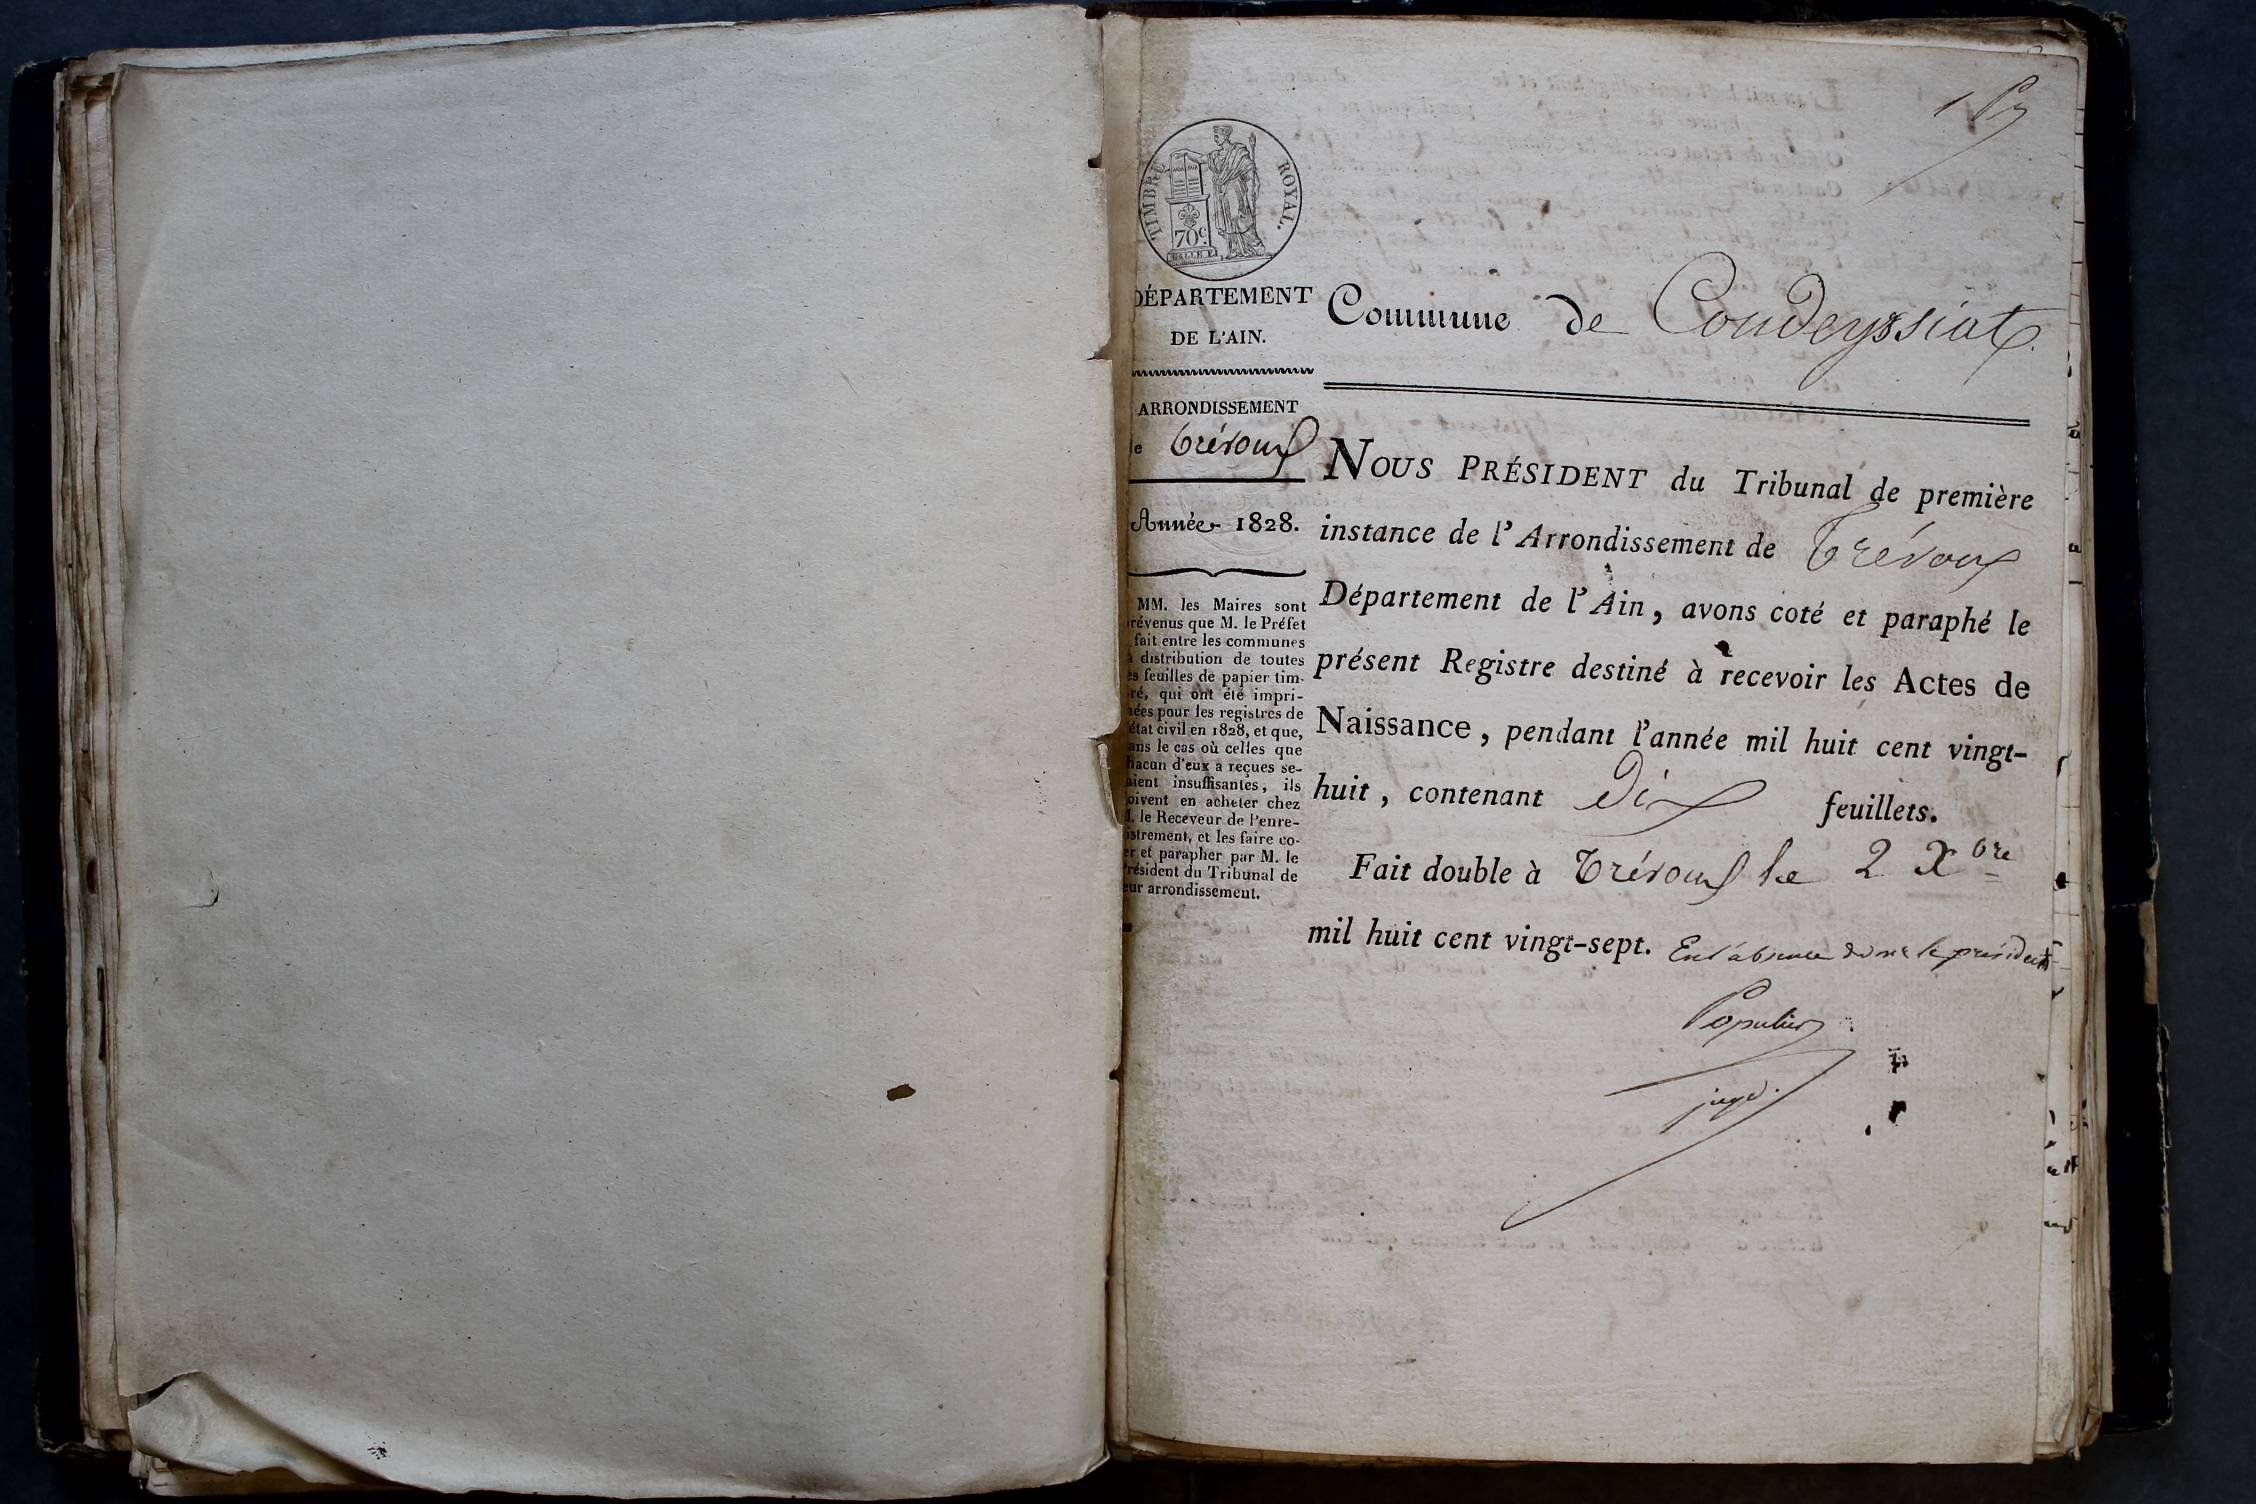 1
TIMBRE ROYAL.
70c.
DÉPARTEMENT
DE L'AIN.
ARRONDISSEMENT
de Trévoux
Année 1828.
MM. les Maires sont
prévenus que M. le Préfet
fait entre les communes
distribution de toutes
es feuilles de papier tim-
ré, qui ont été impri-
ées pour les registres de
état civil en 1828, et que,
ans le cas où celles que
hacun d'eux a reçues se-
aient insuffisantes, ils
oivent en acheter chez
M. le Receveur de l'enre-
istrement, et les faire co-
er et parapher par M. le
résident du Tribunal de
eur arrondissement.
Commune de Condeyssiat
NOUS PRÉSIDENT du Tribunal de première
instance de l'Arrondissement de Trévoux
Département de l'Ain, avons coté et paraphé le
présent Registre destiné à recevoir les Actes de
Naissance, pendant l'année mil huit cent vingt-
huit, contenant Dix feuillets.
Fait double à Trévoux le 2 Xbre
mil huit cent vingt-sept. En l'absence de Mr le président
Populus
juge.